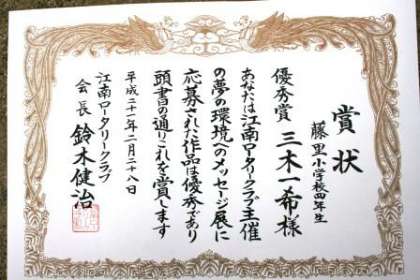 賞状
藤里小学校四年生
優秀賞 三木一希様
あなたは江南ロータリークラブ主催
の夢の環境へのメッセージ展に
応募された作品は優秀であり
頭書の通りこれを賞します
平成二十一年二月二十八日
江南ロータリークラブ
会長 鈴木健治